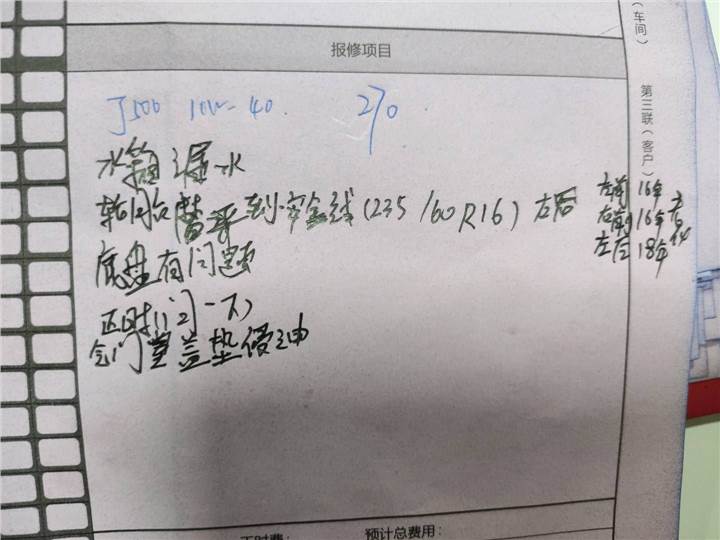 报修项目
J500 10W-40 270
水箱漏水
轮胎 到安全线(235/60R16) 左后
左前 16年
右前 16年
左后 18年
老化
底盘有问题
正时(问一下)
气门室盖垫侵油
工时费: 预计总费用:
(车间)
第三联(客户)